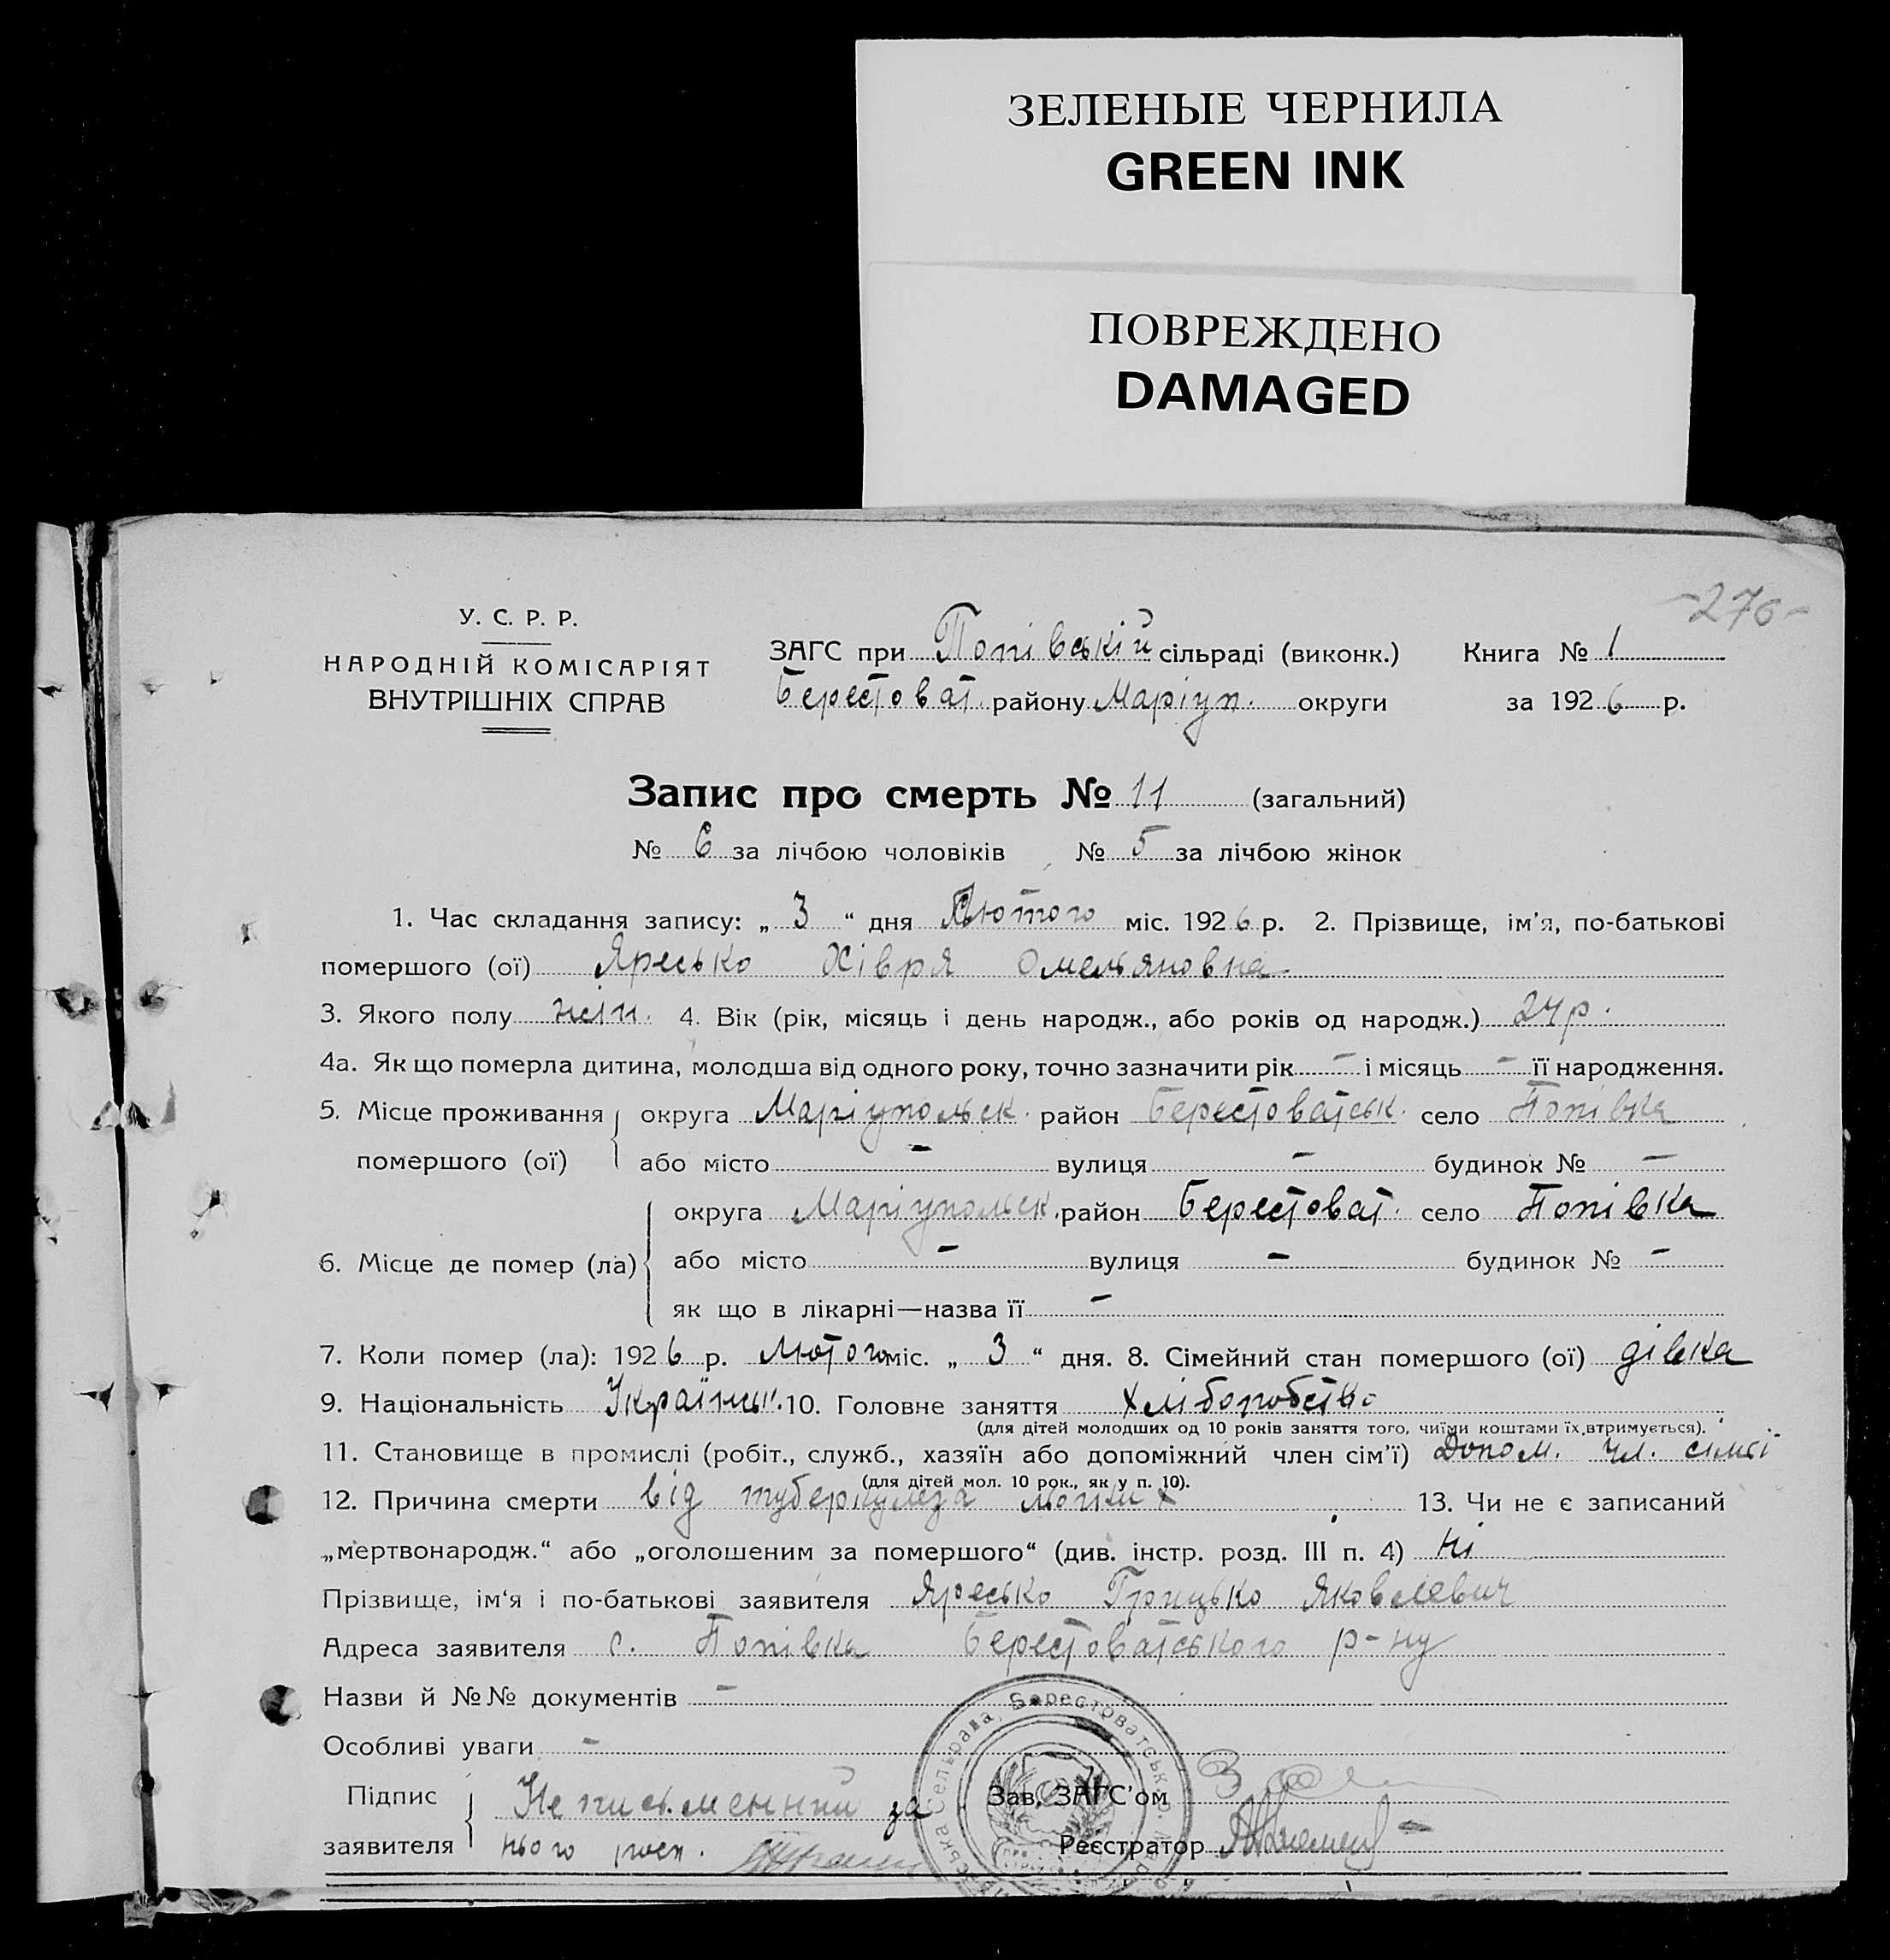 ЗЕЛЕНЫЕ ЧЕРНИЛА
GREEN INK
ПОВРЕЖДЕНО
DAMAGED
-276-
У. С. Р. Р.
НАРОДНІЙ КОМІСАРІЯТ
ВНУТРІШНІХ СПРАВ
ЗАГС при Попівській сільраді (виконк.) Книга № 1
Берестоват. району Маріуп. округи за 1926 р.
Запис про смерть № 11 (загальний)
№ 6 за лічбою чоловіків № 5 за лічбою жінок
1. Час складання запису: „ 3 “ дня Лютого міс. 1926 р. 2. Прізвище, ім'я, по-батькові
помершого (ої) Яресько Хівря Омельяновна
3. Якого полу жін. 4. Вік (рік, місяць і день народж., або років од народж.) 24 р.
4а. Як що померла дитина, молодша від одного року, точно зазначити рік - і місяць - її народження.
5. Місце проживання округа Маріупольск. район Берестоватськ. село Попівка
помершого (ої) або місто - вулиця - будинок № -
округа Маріупольск. район Берестоват. село Попівка
6. Місце де помер (ла) або місто - вулиця - будинок № -
як що в лікарні—назва її -
7. Коли помер (ла): 1926 р. Лютого міс. „ 3 “ дня. 8. Сімейний стан помершого (ої) дівка
9. Національність Українськ. 10. Головне заняття хліборобство
(для дітей молодших од 10 років заняття того, чиїми коштами їх втримується).
11. Становище в промислі (робіт., служб., хазяїн або допоміжний член сім'ї) Допом. чл. сімї
(для дітей мол. 10 рок., як у п. 10).
12. Причина смерти від туберкульоза 13. Чи не є записаний
„мертвонародж.“ або „оголошеним за помершого“ (див. інстр. розд. III п. 4) Ні
Прізвище, ім'я і по-батькові заявителя Яресько Грицько Яковлевич
Адреса заявителя с. Попівка Берестоватського р-ну
Назви й №№ документів -
Особливі уваги -
Підпис Неписьменний за
заявителя нього росп.
Зав. ЗАГС'ом
Реєстратор
Сельрада, Берестоватськ